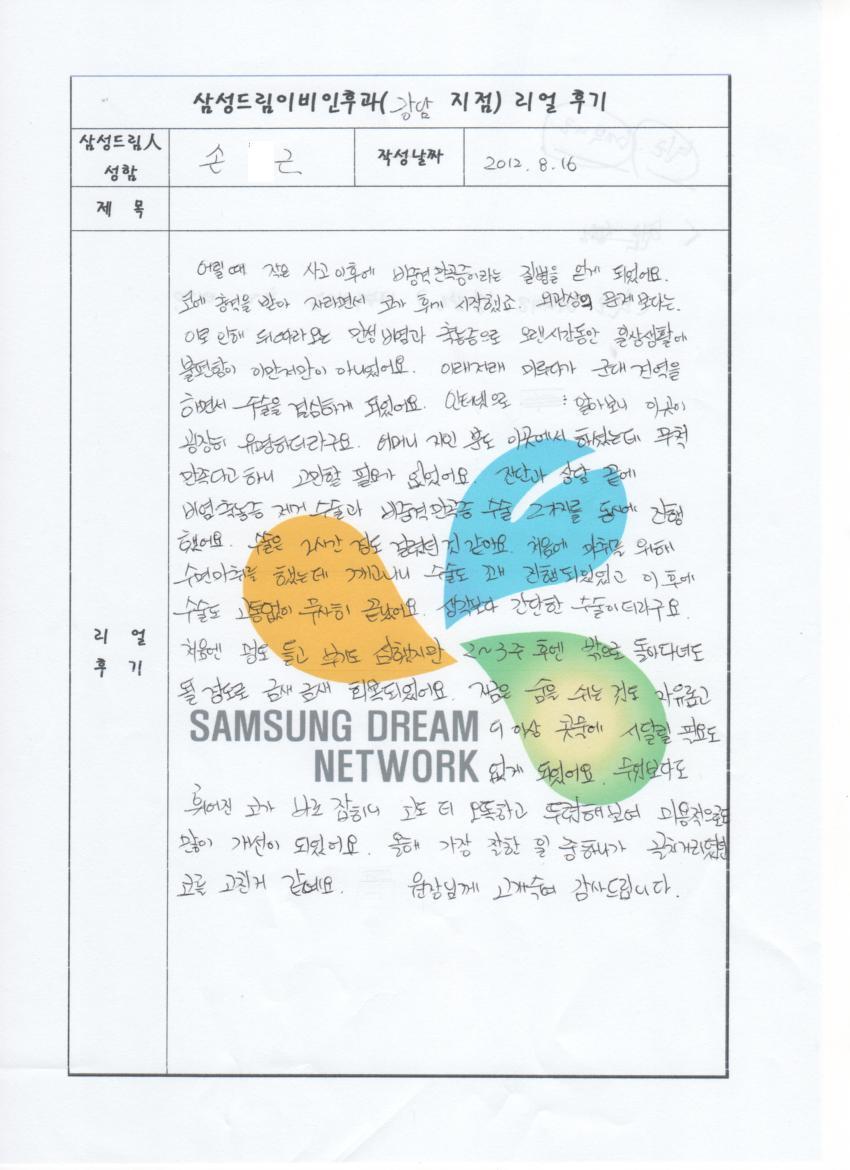 삼성드림이비인후과(강남 지점) 리얼 후기
삼성드림人 성함
손 근
작성날짜
2012. 8. 16
제 목
리 얼 후 기
어릴 때 작은 사고 이후에 비중격 만곡증이라는 질병을 얻게 되었어요.
코에 충격을 받아 자라면서 코가 휘기 시작했죠. 외관상의 문제 보다는.
이로 인해 뒤따라오는 만성 비염과 축농증으로 오랜시간동안 일상생활에
불편함이 이만저만이 아니었어요. 이래저래 미루다가 군대 전역을
하면서 수술을 결심하게 되었어요. 인터넷으로 알아보니 이곳이
굉장히 유명하더라구요. 어머니 지인 분도 이곳에서 하셨는데 무척
만족다고 하니 고민할 필요가 없었어요. 진단과 상담 끝에
비염·축농증 제거 수술과 비중격 만곡증 수술 2가지를 동시에 진행
했어요. 수술은 2시간 정도 걸렸던 것 같아요. 처음에 마취를 위해
수면마취를 했는데 깨고나니 수술도 진행되있었고 이 후에
수술도 고통없이 무사히 끝났어요. 생각보다 간단한 수술이더라구요.
처음엔 멍도 들고 붓기도 심했지만 2~3주 후엔 밖으로 돌아다녀도
될 정도로 금새 금새 회복되었어요. 지금은 숨을 쉬는 것도 자유롭고
더 이상 콧물에 시달릴 필요도
없게 되었어요. 무엇보다도
휘어진 코가 바로 잡히니 코도 더 오똑하고 뚜렷해보여 미용적으로도
많이 개선이 되었어요. 올해 가장 잘한 일 중 하나가
코를 고친거 같네요. 원장님께 고개숙여 감사드립니다.
SAMSUNG DREAM
NETWORK